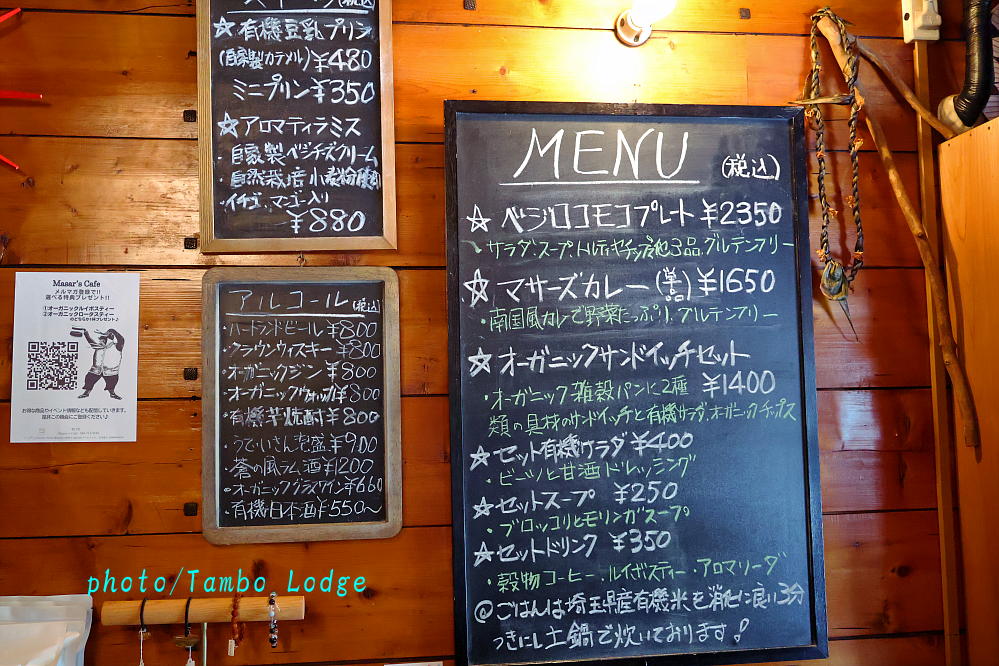 (税込)
☆有機豆乳プリン
(自家製カラメル)¥480
ミニプリン¥350
☆アロマティラミス
・自家製ベジチーズクリーム
・自然栽培小麦粉
・イチゴ、マンゴー入り
¥880
アルコール(税込)
・ハートランドビール¥800
・クラウンウィスキー¥800
・オーガニックジン¥800
・オーガニックウォッカ¥800
・有機芋焼酎¥800
・うでぃさん泡盛¥900
・蒼の風ラム酒¥1200
・オーガニックグラスワイン¥660
・有機日本酒¥550〜
Masar's Cafe
メルマガ登録で!!
選べる特典プレゼント!!
①オーガニックルイボスティー
②オーガニックロータスティー
お得な商品やイベント情報なども配信していきます。
是非この機会にご登録ください♪
MENU (税込)
☆ベジロコモコプレート¥2350
・サラダ、スープ、トルティヤチップス他3品、グルテンフリー
☆マサーズカレー ¥1650
・南国風カレーで野菜たっぷり、グルテンフリー
☆オーガニックサンドイッチセット
・オーガニック雑穀パンに2種 ¥1400
類の具材のサンドイッチと有機サラダ、オーガニックチップス
☆セット有機サラダ¥400
・ビーツと甘酒ドレッシング
☆セットスープ ¥250
・ブロッコリとモリンガスープ
☆セットドリンク ¥350
・穀物コーヒー、ルイボスティー、アロマソーダ
@ごはんは埼玉県産有機米を消化に良い3分
つきにし土鍋で炊いております!
photo/Tambo Lodge